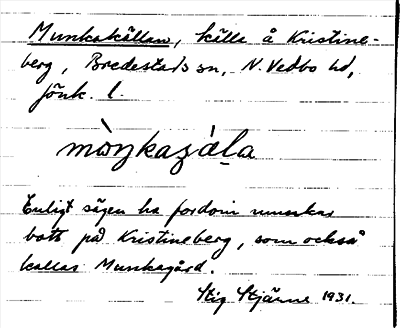 Munkakällan, källa å Kristine-
berg, Bredestads sn, N. Vedbo hd,
Jönk. l.
mòŋkaʒǽla
Enligt sägen ha fordom munkar
bott på Kristineberg, som också
kallas Munkagård.
Stig Stjärne 1931.